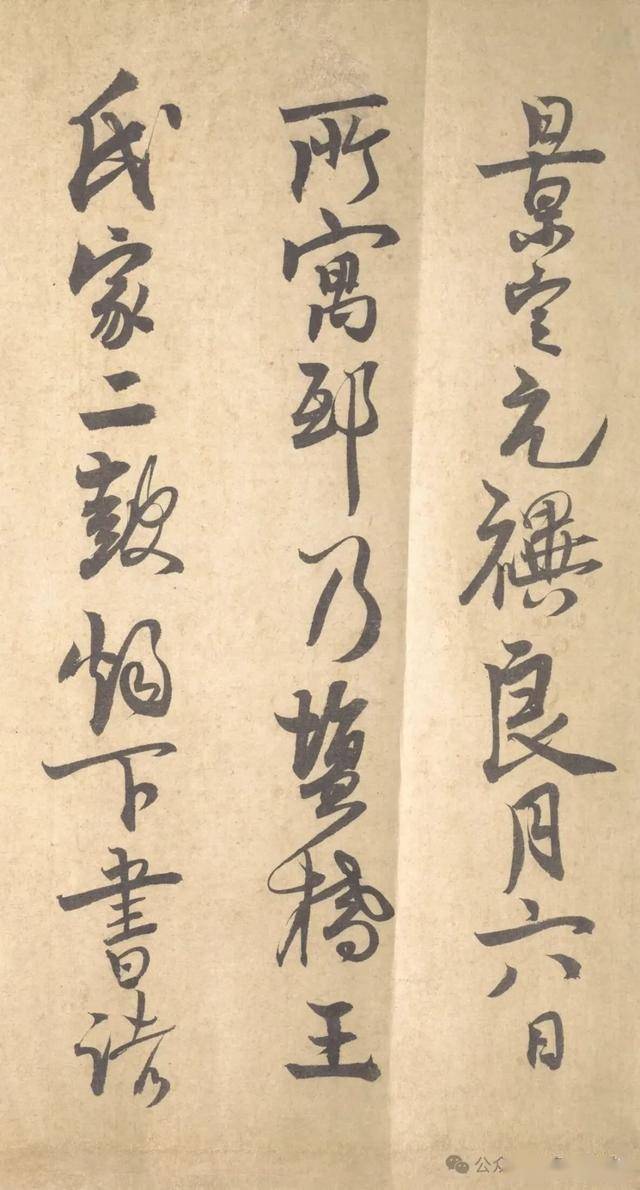 景定元禩良月六日
所寓邸乃鹽橋王
氏家二鼓燭下書諸
公众